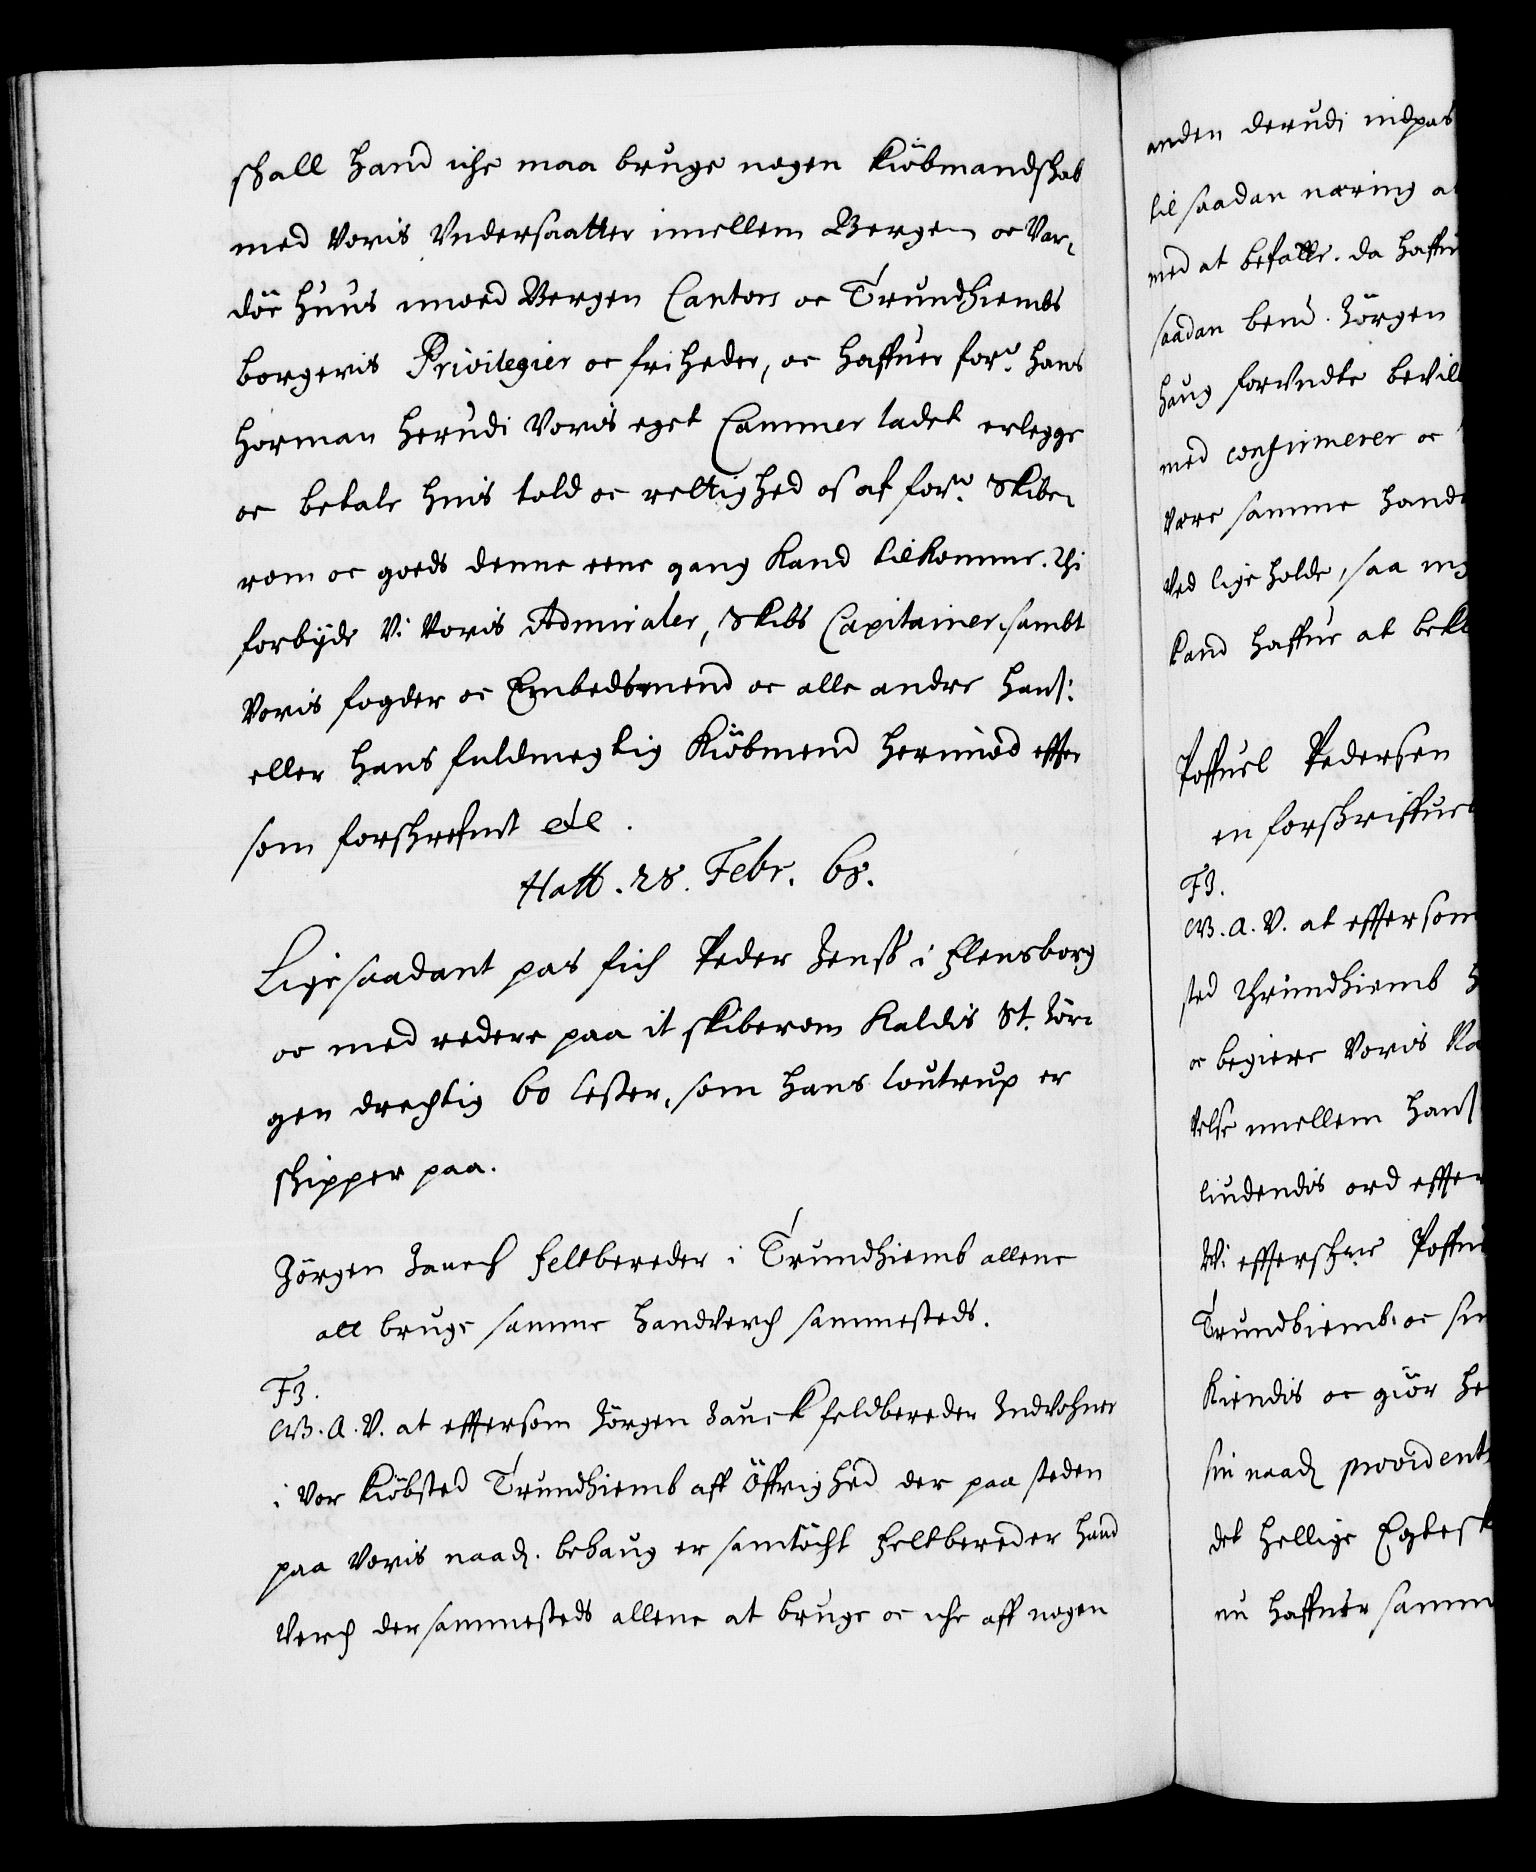 shall hand iche maa bruge nogen Kiöbmandskab
med Voris Vndersaatter imellem Bergen oc Var-
döe huus imod Bergen Cantors oc Trundhiembs
borgeris Privilegier oc friheder, oc haffuer for.ne hans
Horman herudi Voris eget Cammer ladet erlegge
oc betale huis told oc rettighed os af for.ne Skibe-
rom oc goeds denne eene gang Kand tilkomme. Thi
forbyde Vi Voris Admiraler, Skibs Capitainer, sambt
Voris fogder oc Embedsmend oc alle andre hans:
eller hans fuldmegtig Kiöbmend herimod effter
som forskrefuit etc.
Haff. 28. Febr. 68.
Lige saadant pas fich Peder Jenss i Flensborg
oc med redere paa it skiberom Kaldis St. Jör-
gen drechtig 60 lester, som Hans Loutrup er
skipper paa.
Jörgen Zauch feltbereder i Trundhiemb allene
att bruge samme handverch sammesteds.
F3.
G.A.V. at effersom Jörgen Zauck feldbereder Indvohner
i Vor Kiöbsted Trundhiemb aff Öffrighed der paa steden
paa Voris naad. behaug er samtöcht Feltbereder hand
Verch der sammesteds allene at bruge oc iche aff nogen
anden derudi indpas
til saadan næring at
med at befatte. da haffu
saadan bem.te Jörgen
haug forundte bevill
med confirmerer oc
Være samme handt
Ved lige holde, saa in
kand haffue at bekl
Poffuel Pedersen
en forskriffuel
F3.
G.A.V. at effersom
sted Thrundhiemb
oc begiere Voris Na
velse imellem hans
liudendis ord effter
Vi effterschr.ne Poffu
Trundhiemb. oc sin
Kiendis oc giör he
sin naad providents
det hellige Egtesk
nu haffuer samm